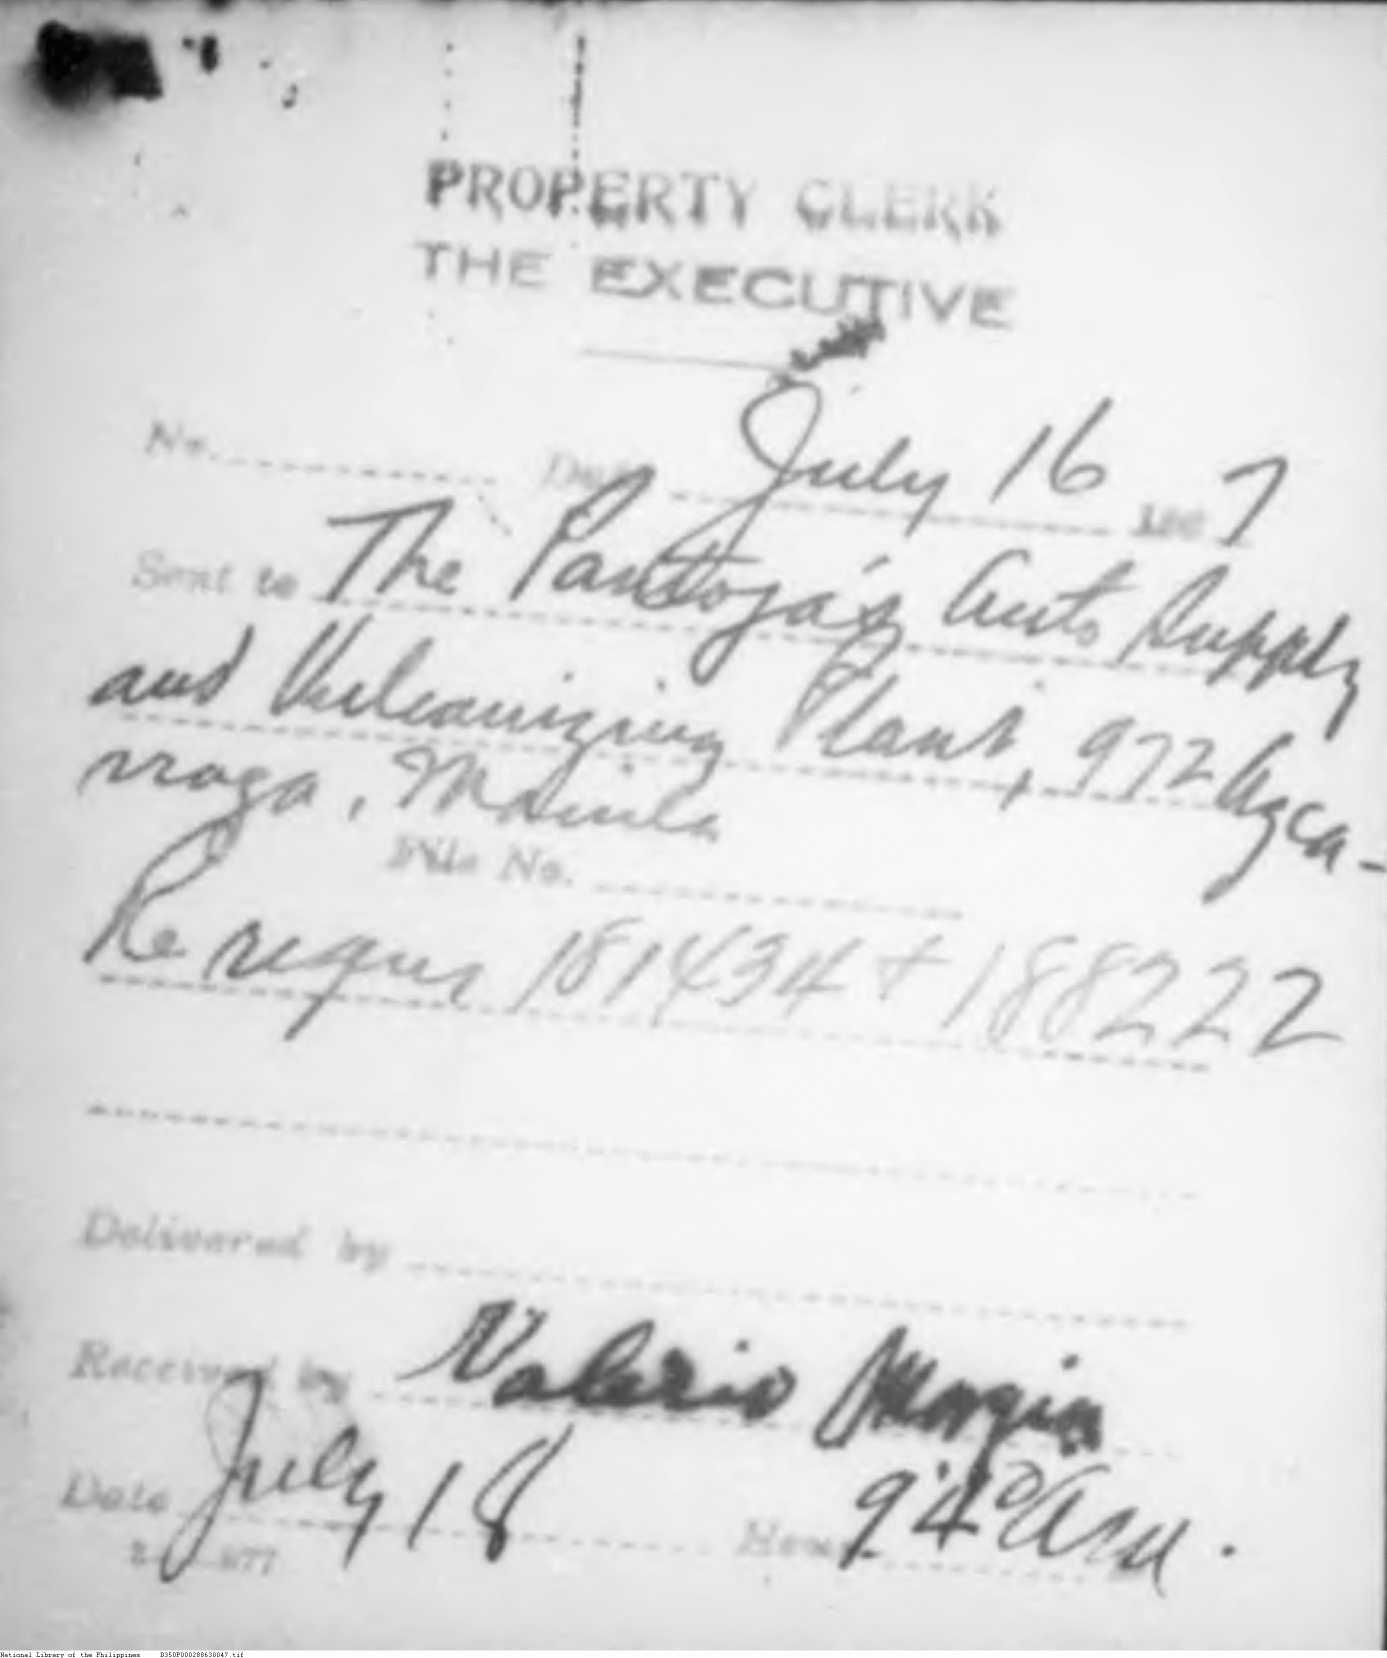 PROPERTY CLERK
THE EXECUTIVE
No. Date July 16 7
Sent to The Pantoja's Auto Supply
and Vulcanizing Plant, 972 Azca-
rraga, Manila
File No.
Re reqns 181434 + 188222
Delivered by
Received by Valerio
Date July 18 Hour 9:40 AM.
National Library of the Philippines